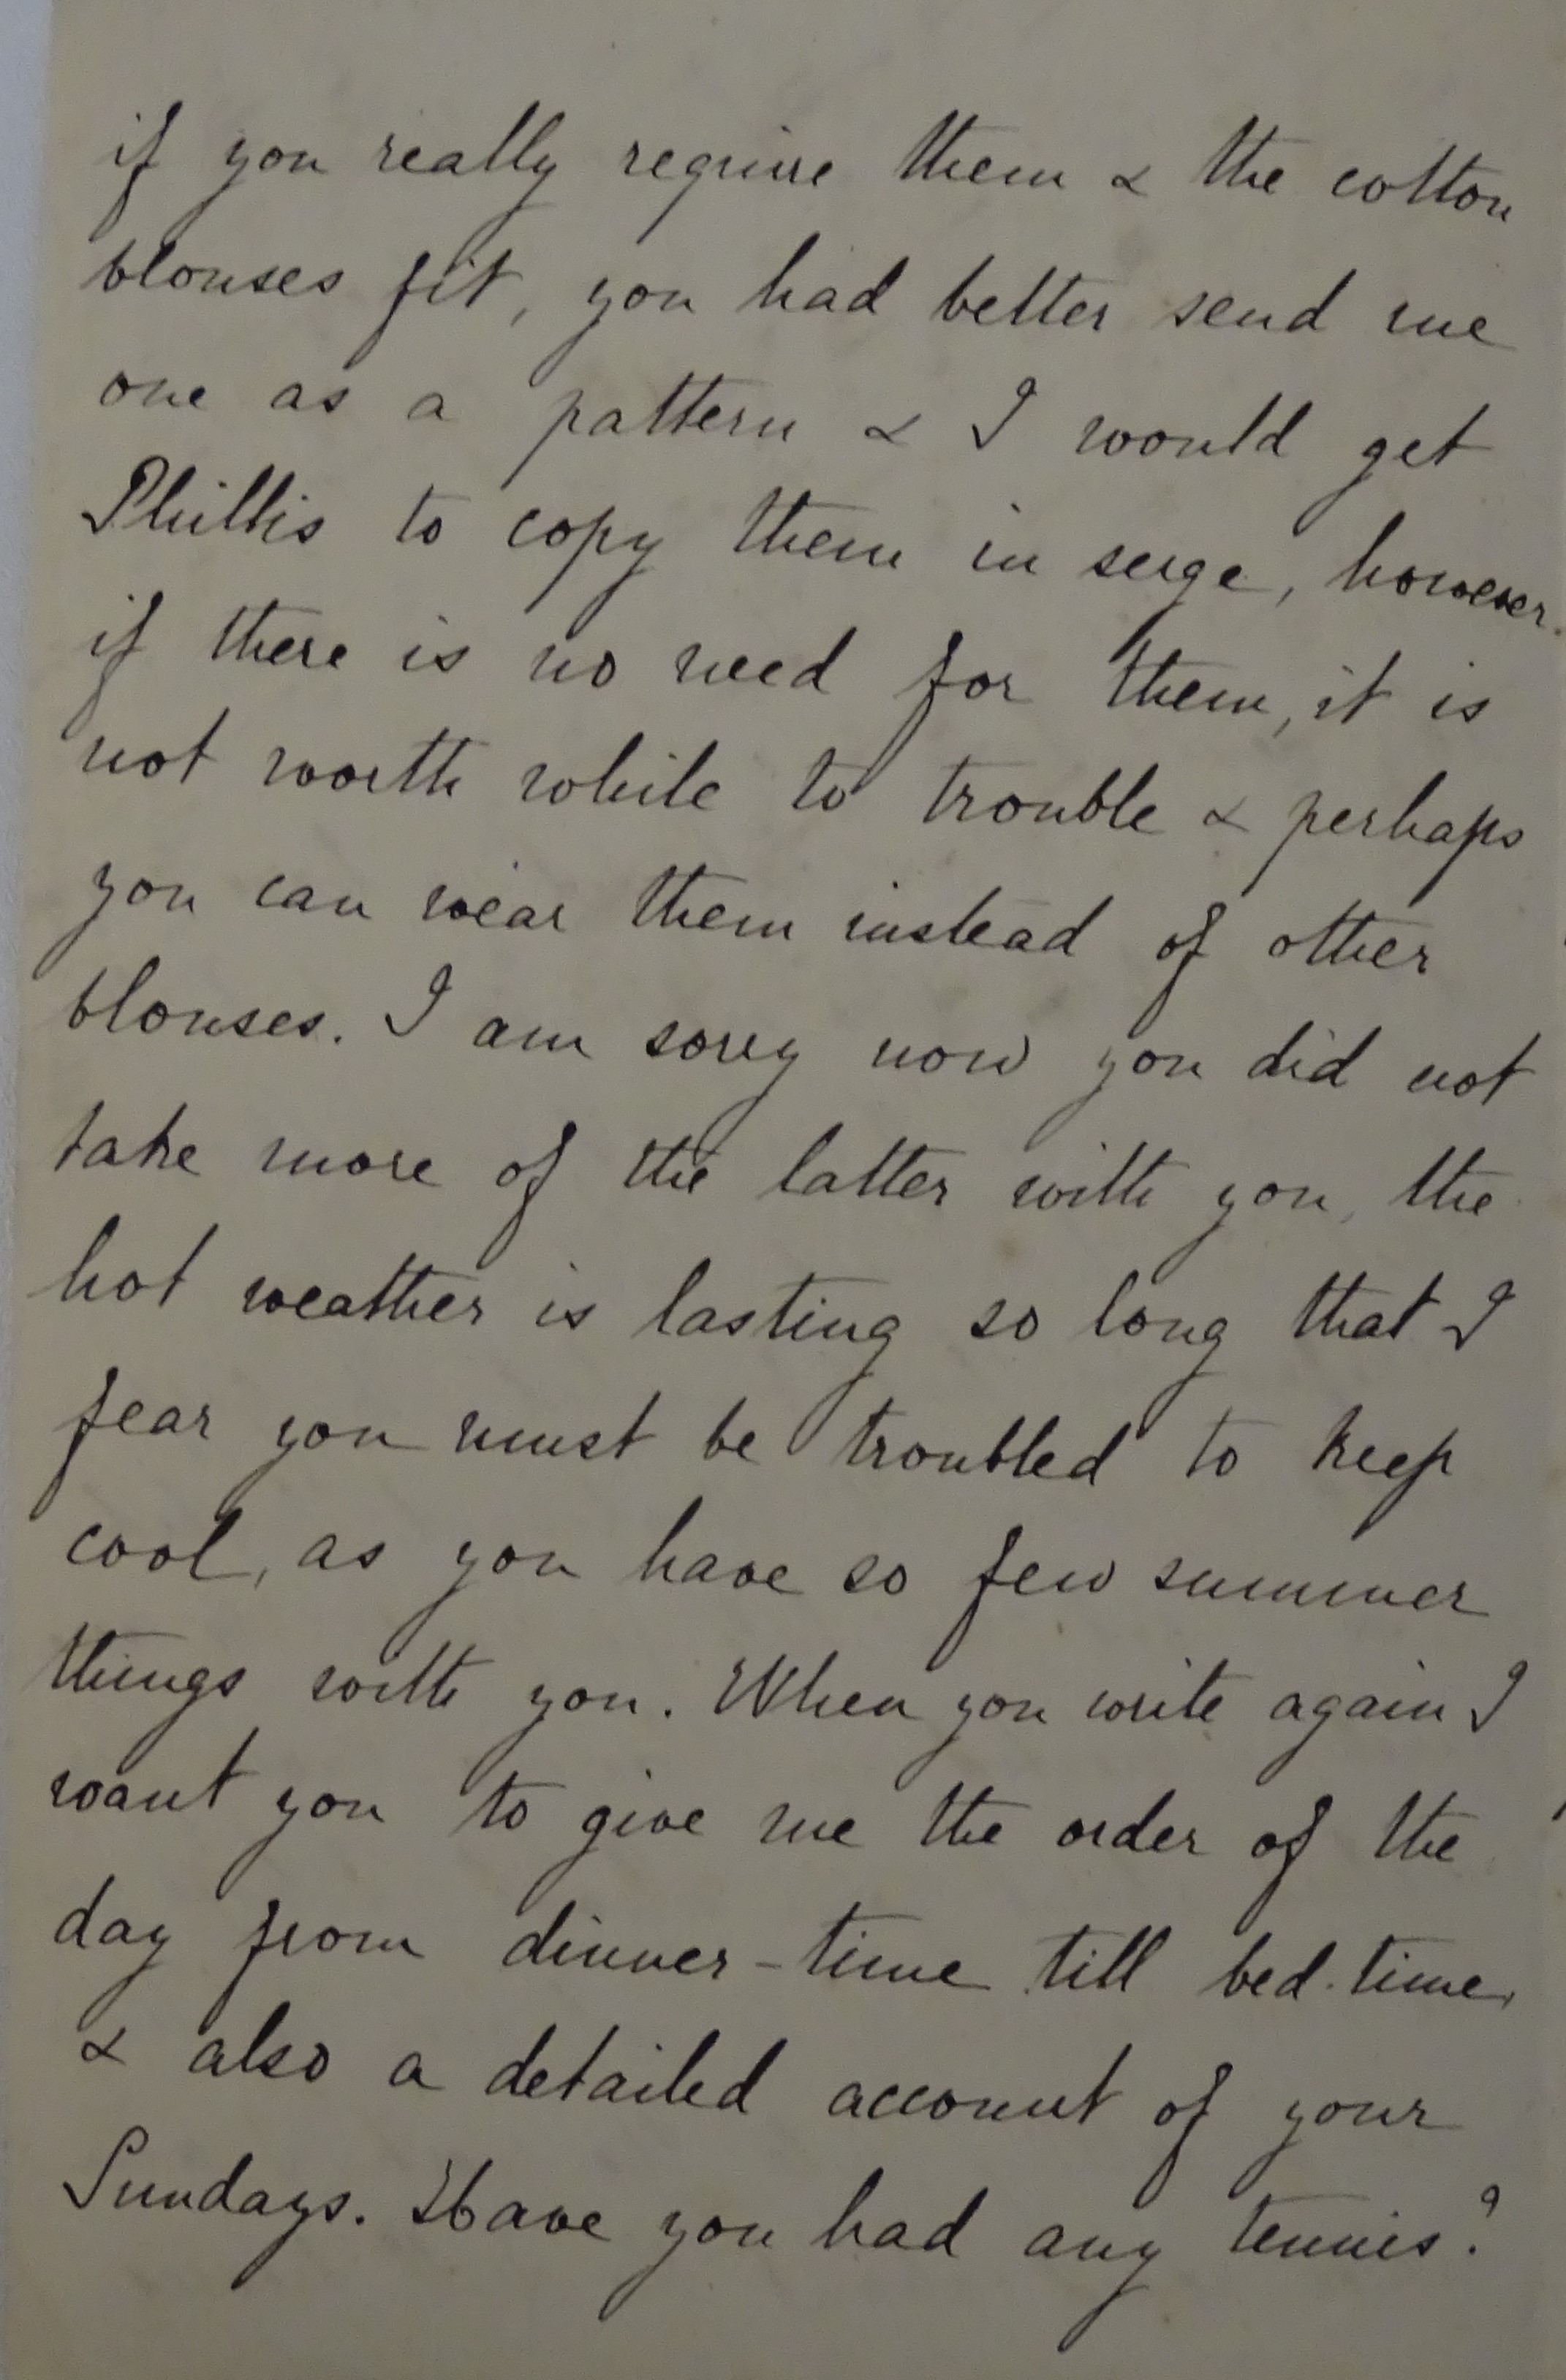 if you really require them & the cotton
blouses fit, you had better send me
one as a pattern & I would get
Phillis to copy them in serge, however.
if there is no need for them, it is
not worth while to trouble & perhaps
you can wear them instead of other
blouses. I am sorry now you did not
take more of the latter with you, the
hot weather is lasting so long that I
fear you must be troubled to keep
cool, as you have so few summer
things with you. When you write again I
want you to give me the order of the
day from dinner-time till bed.time,
& also a detailed account of your
Sundays. Have you had any tennis?